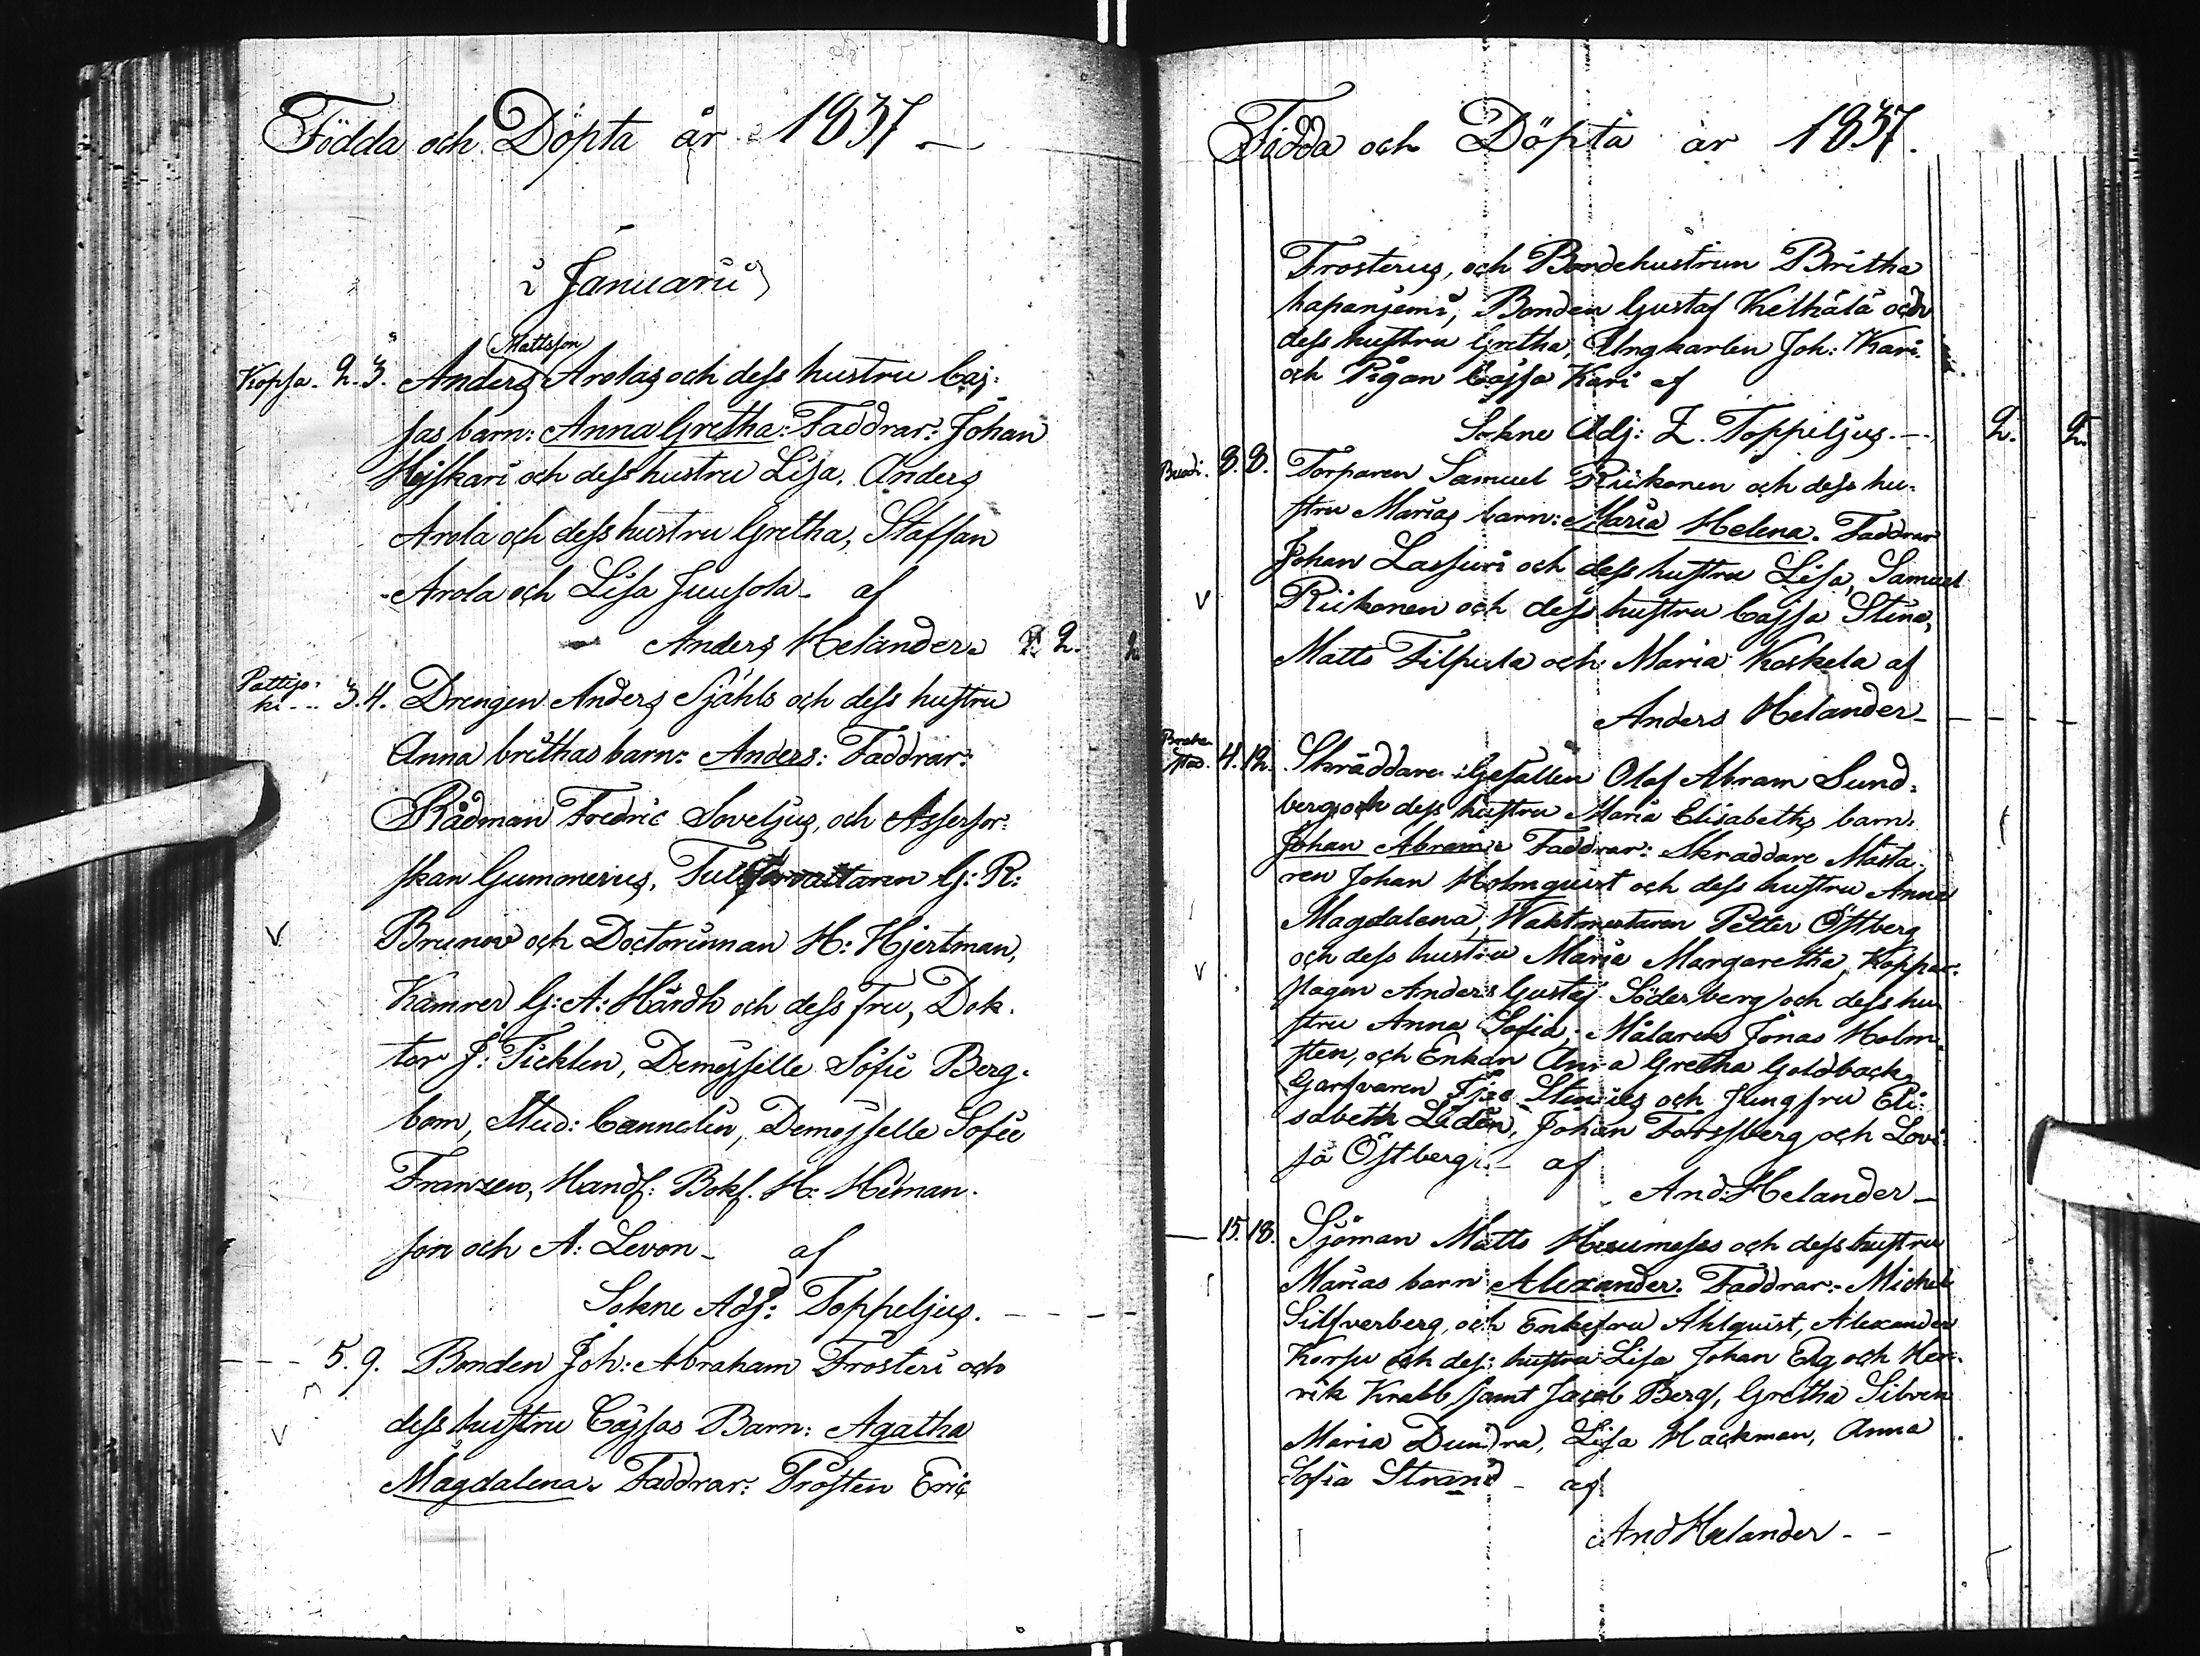 Födda och Döpta år 1837.
i Januarii
Mattsson
Kopsa. 2. 3. Anders Arolas och dess hustru Caj-
sas barn: Anna Gretha: Faddrar: Johan
Hejskari och dess hustru Lisa, Anders
Arola och dess hustru Gretha, Staffan
Arola och Lisa Juusola af
Anders Helander 2.
Pattijo-
ki 3. 4. Drengen Anders Sjöhls och dess hustru
Anna brithas barn: Anders: Faddrar:
Rådman Fredric Soveljus, och Assessor-
skan Gumonerius, Tullförvaltaren G: R:
Brunow och Doctorinnan H: Hjertman,
Kamrer G: A: Hårdh och dess Fru, Dok-
tor J: Ticklen, Demojselle Sofie Berg-
bom, Stud: Cannelin, Demojselle Sofie
Franzen, Handf: Bokf. H: Heman-
son och A: Levon af
Sokne Adj: Toppeljus.
5. 9. Bonden Joh: Abraham Frosteri och
dess hustru Cajsas Barn: Agatha
Magdalena. Faddrar: Prosten Eric
Födda och Döpta år 1837.
Frosterus, och Bondehustrun Britha
hapanjemi, Bonden Gustaf Kelhälä och
dess hustru Gretha, Ungkarlen Joh: Kari
och Pigan Cajsa Kari af
Sokne Adj: Z. Toppeljus. 2. 2.
8. 8. Torparen Samuel Riikonen och dess hu-
stru Marias barn: Maria Helena. Faddrar
Johan Lassuri och dess hustru Lisa, Samuel
Riikonen och dess hustru Cajsa Stina,
Matts Filpula och Maria Koskela af
Anders Helander
4. 12. Skräddare Gesällen Olof Abram Sund-
berg och dess hustru Maria Elisabeths barn:
Johan Abram. Faddrar: Skräddare Mästa-
ren Johan Holmquist och dess hustru Anna
Magdalena, Waktmestaren Petter Östberg
och dess hustru Maria Margaretha, Koppar-
slagen Anders Gustaf Söderberg och dess hu-
stru Anna Sofia, Målaren Jonas Holm-
sten, och Enkan Anna Gretha Goldback
Garfvaren Isac Stenius och Jungfru Eli-
sabeth Lidén, Johan Forssberg och Lovi-
sa Östberg af
And. Helander
15. 18. Sjöman Matts Huumeses och dess hustru
Marias barn Alexander. Faddrar: Michel
Silfverberg, och Enkefru Ahlquist, Alexander
Korsu och dess hustru Lisa Johan Elg och Hen-
rik Krabb samt Jacob Berg, Gretha Silven
Maria Dundra, Lisa Hackman, Anna
Sofia Strand af
And Helander